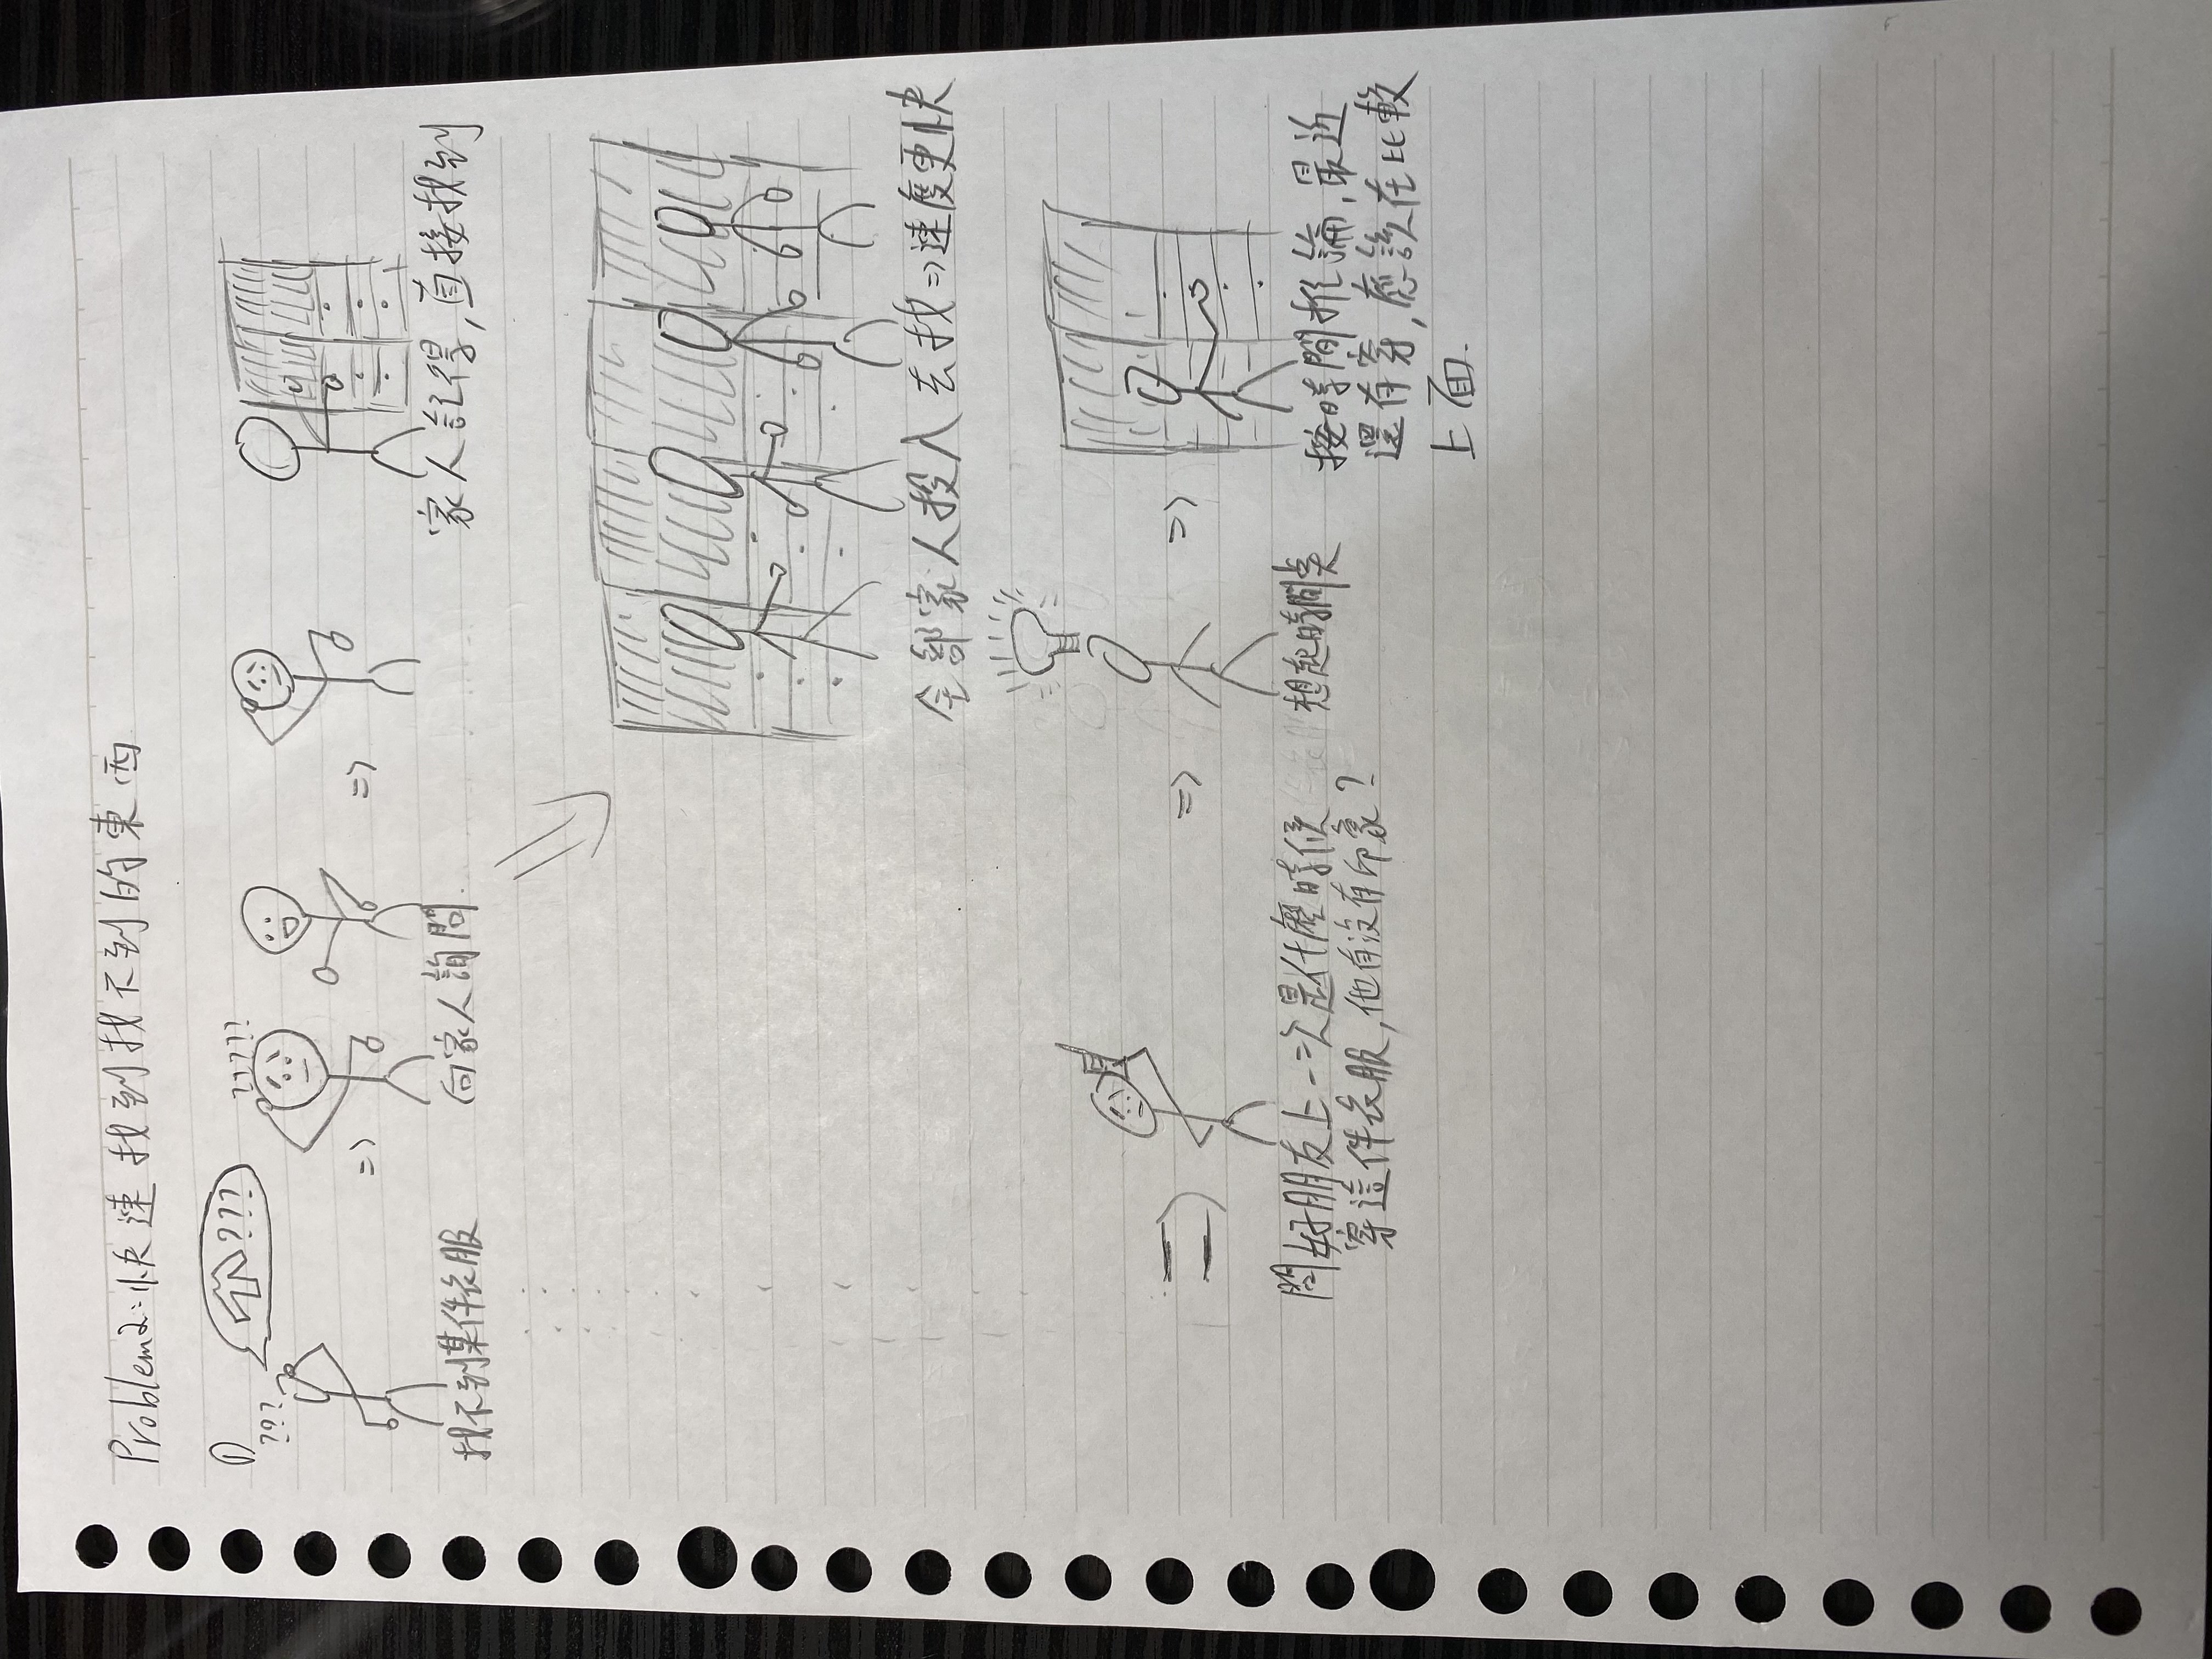 Problem2:快速找到找不到的東西
①
???
???
?????
找不到某件衣服
向家人詢問.
家人記得,直接找到
全部家人投入去找=>速度更快
問好朋友上一次是什麼時候
穿這件衣服,他有沒有印象?
想起時間點
按時間推論,最近
還有穿,應該在比較
上面.